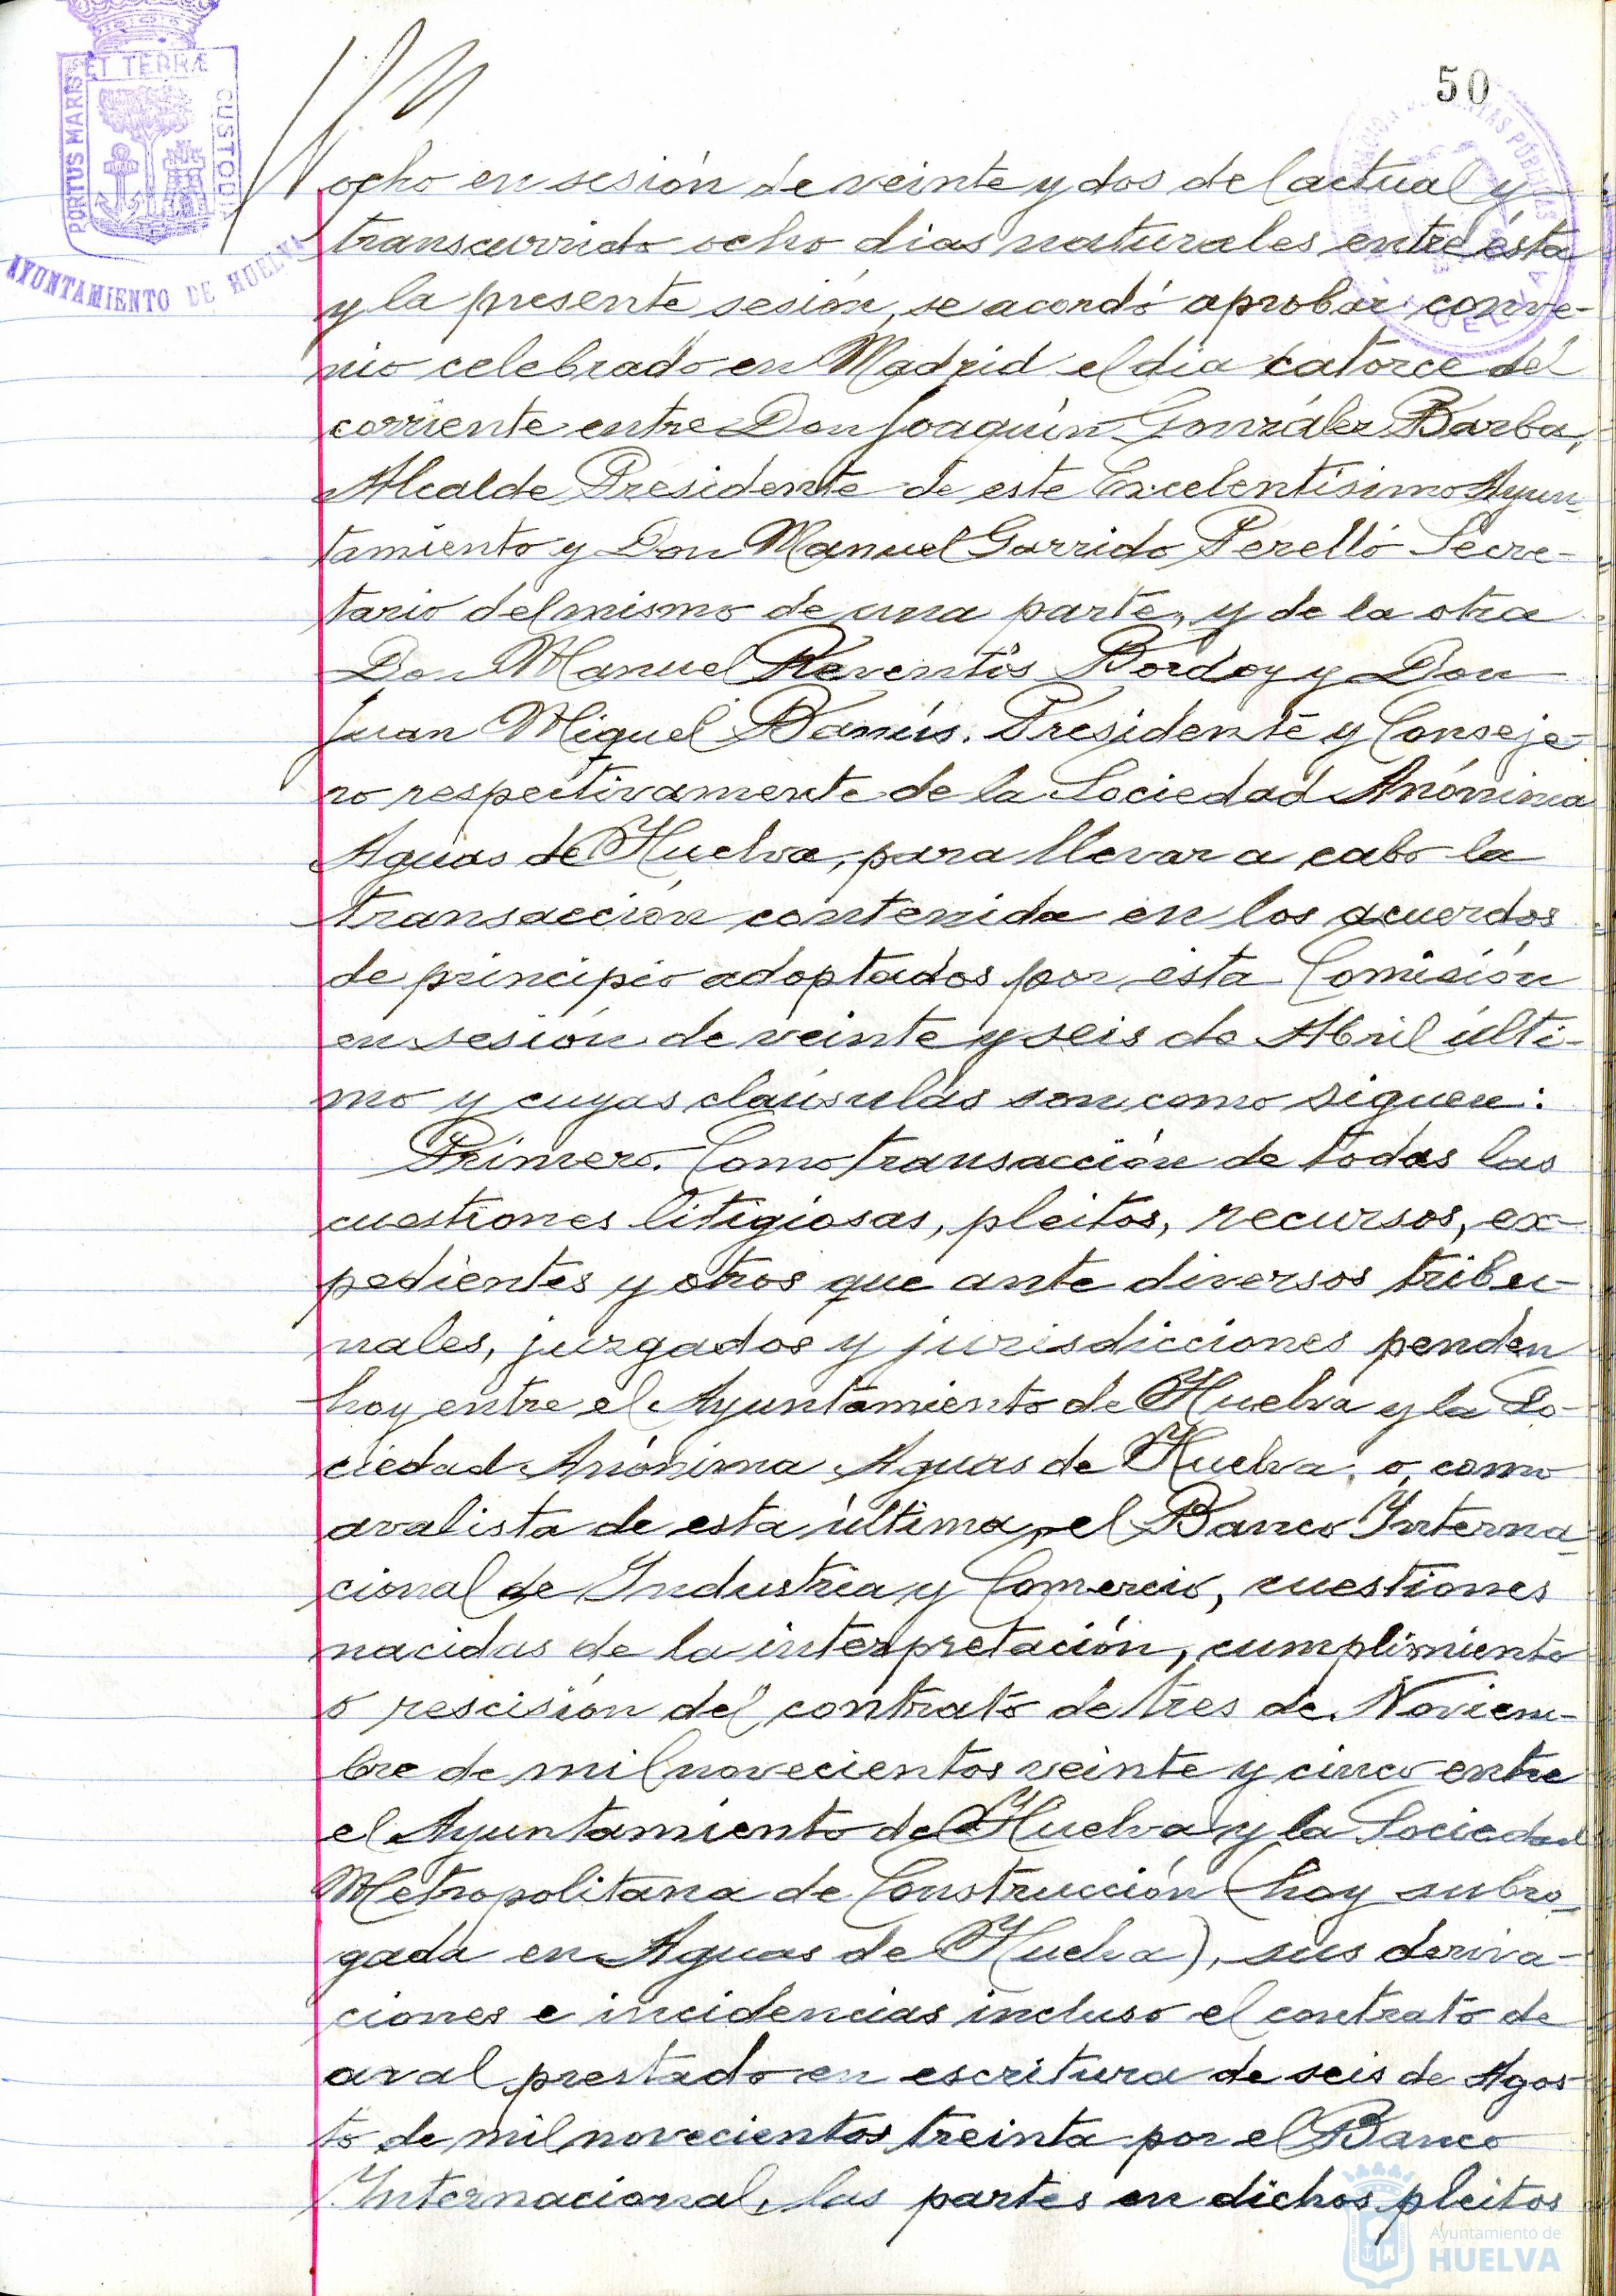 50
PORTUS MARIS ET TERRÆ CUSTODIA
AYUNTAMIENTO DE HUELVA
ocho en sesión de veinte y dos del actual y
transcurrido ocho dias naturales entre ésta
y la presente sesión, se acordó aprobar conve-
nio celebrado en Madrid el dia catorce del
corriente entre Don Joaquín González Barba,
Alcalde Presidente de este Excelentísimo Ayun-
tamiento y Don Manuel Garrido Perelló Secre-
tario del mismo de una parte, y de la otra
Don Manuel Reventós Bordoy y Don
Juan Miguel Banús. Presidente y Conseje-
ro respectivamente de la Sociedad Anónima
Aguas de Huelva, para llevar a cabo la
transacción contenida en los acuerdos
de principio adoptados por esta Comisión
en sesión de veinte y seis de Abril últi-
mo y cuyas claúsulas son como siguen:
Primero. Como transacción de todas las
cuestiones litigiosas, pleitos, recursos, ex-
pedientes y otros que ante diversos tribu-
nales, juzgados y jurisdicciones penden
hoy entre el Ayuntamiento de Huelva y la So-
ciedad Anónima Aguas de Huelva, o como
avalista de esta última, el Banco Interna-
cional de Industria y Comercio, cuestiones
nacidas de la interpretación, cumplimiento
o rescisión del contrato de tres de Noviem-
bre de mil novecientos veinte y cinco entre
el Ayuntamiento de Huelva y la Sociedad
Metropolitana de Construcción (hoy subro-
gada en Aguas de Huelva), sus deriva-
ciones e incidencias incluso el contrato de
aval prestado en escritura de seis de Agos-
to de mil novecientos treinta por el Banco
Internacional, las partes en dichos pleitos
Ayuntamiento de
HUELVA